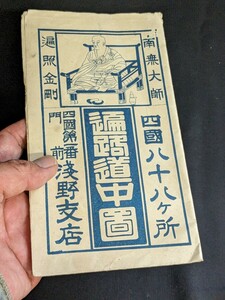 南無大師
遍照金剛
四國八十八ヶ所
遍路道中圖
四國第一番
門前
淺野支店